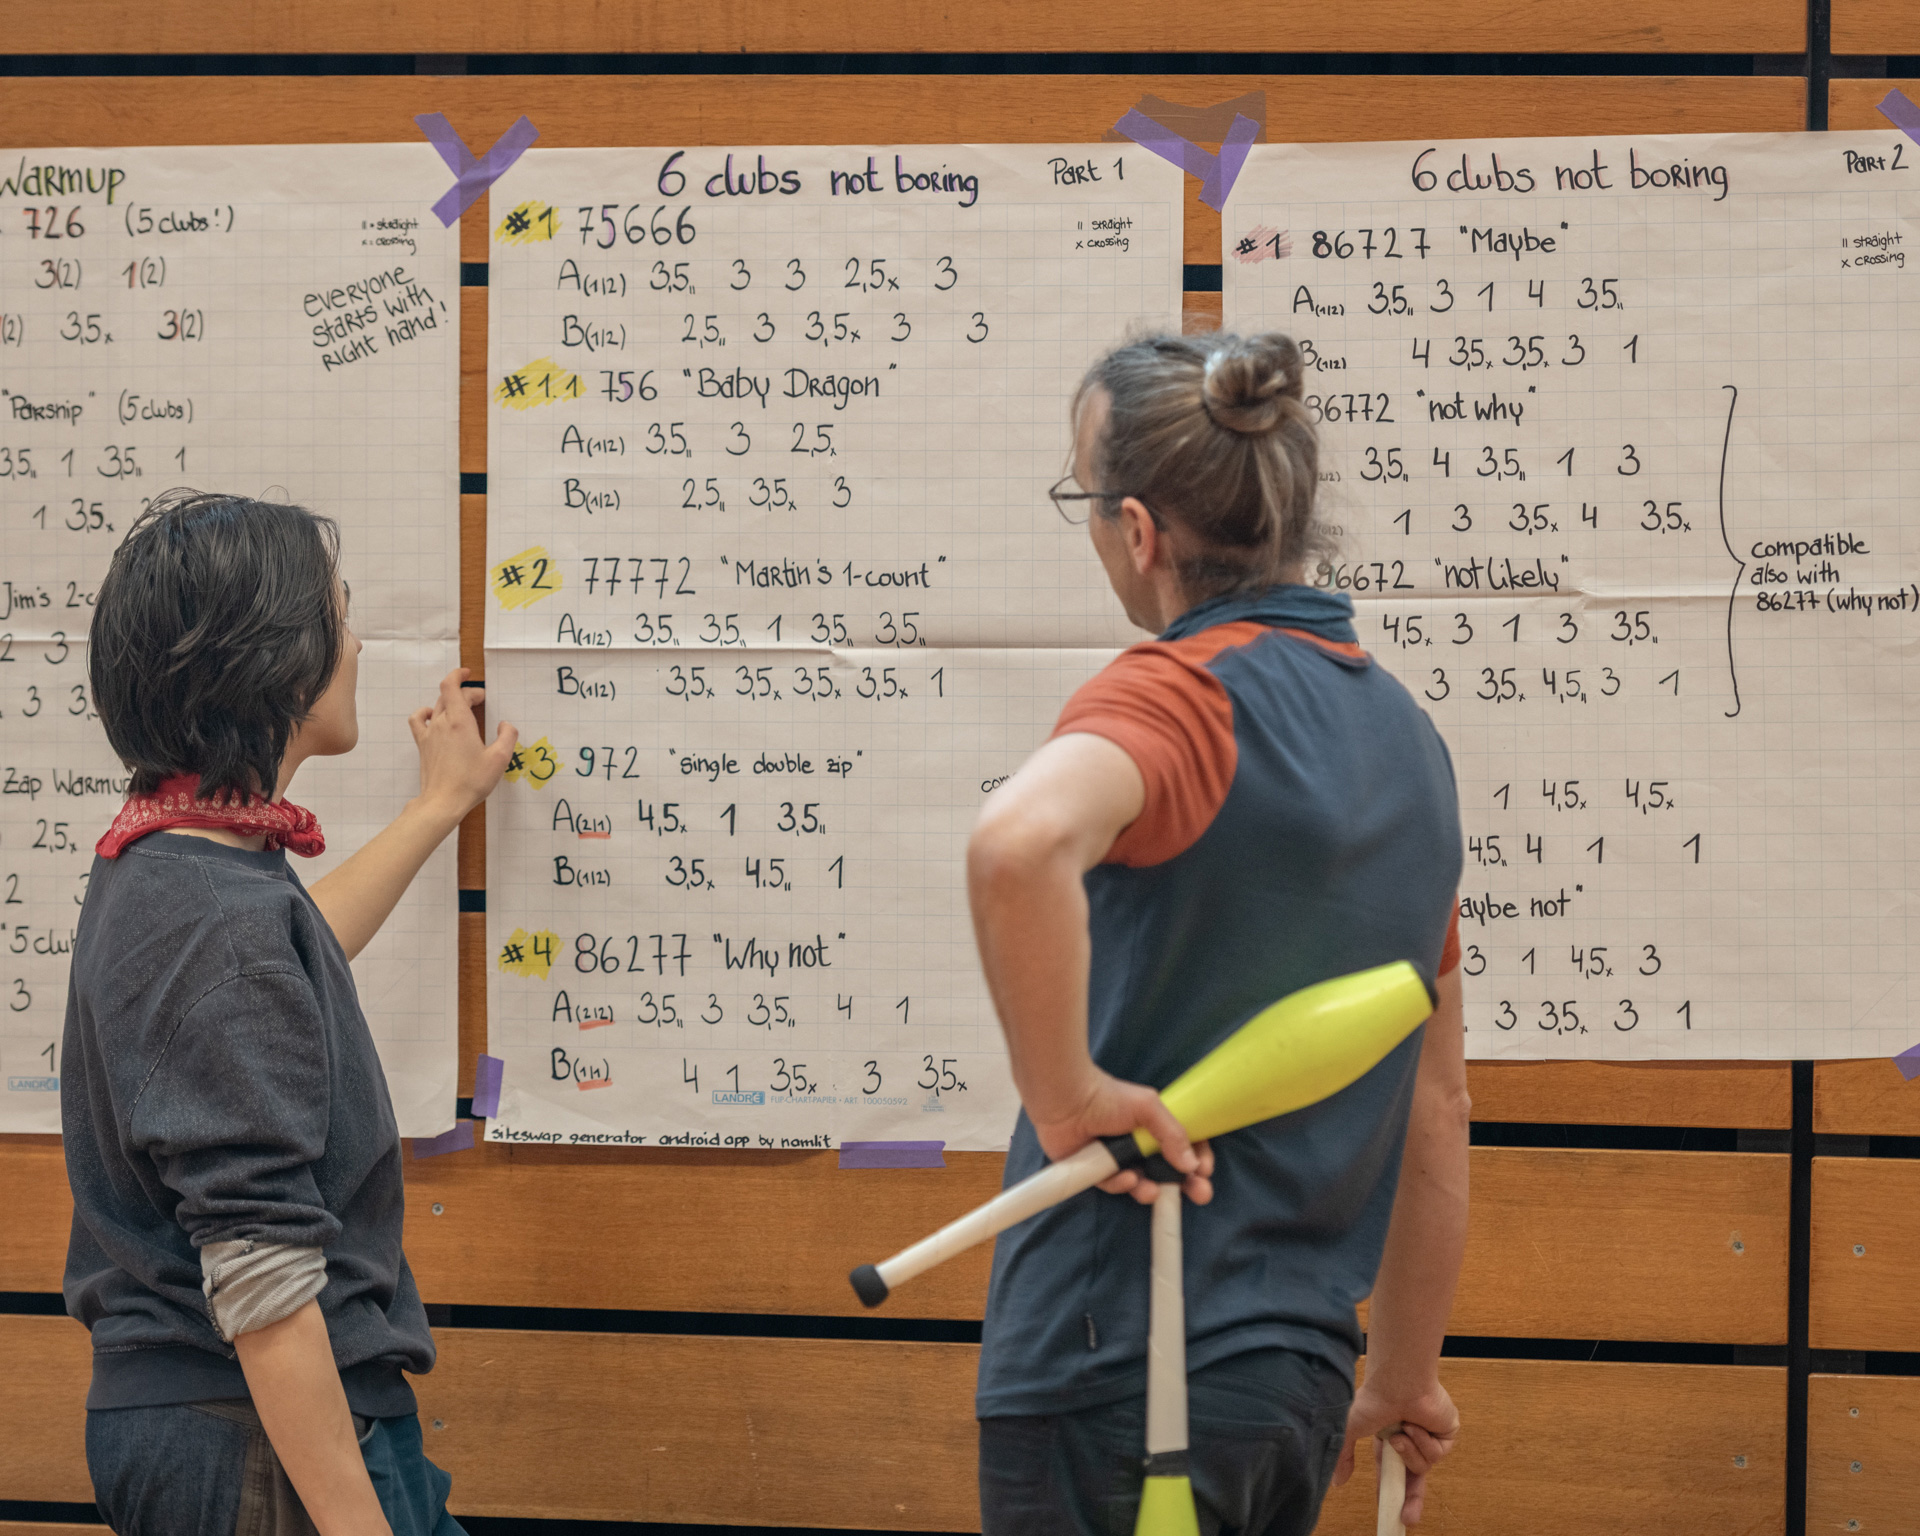 Warmup
726 (5 clubs!)
|| = straight
x = crossing
3(2) 1(2)
(2) 3,5x 3(2)
everyone
starts with
right hand!
"Parsnip" (5 clubs)
3,5|| 1 3,5|| 1
1 3,5x
Jim's 2-c
2 3
3 3,
Zap Warmup
2,5x
2 3
"5 clu
3
1
LANDRÉ
6 clubs not boring Part 1
|| straight
x crossing
#1 75666
A(1|2) 3,5|| 3 3 2,5x 3
B(1|2) 2,5|| 3 3,5x 3 3
#1.1 756 "Baby Dragon"
A(1|2) 3,5|| 3 2,5x
B(1|2) 2,5|| 3,5x 3
#2 77772 "Martin's 1-count"
A(1|2) 3,5|| 3,5|| 1 3,5|| 3,5||
B(1|2) 3,5x 3,5x 3,5x 3,5x 1
#3 972 "single double zip"
com
A(2|1) 4,5x 1 3,5||
B(1|2) 3,5x 4,5|| 1
#4 86277 "Why not"
A(2|2) 3,5|| 3 3,5|| 4 1
B(1|1) 4 1 3,5x 3 3,5x
LANDRÉ FLIP-CHART-PAPIER • ART. 100050592
siteswap generator android app by namlit
6 clubs not boring Part 2
|| straight
x crossing
#1 86727 "Maybe"
A(1|2) 3,5|| 3 1 4 3,5||
B(1|2) 4 3,5x 3,5x 3 1
86772 "not why"
3,5|| 4 3,5|| 1 3
1 3 3,5x 4 3,5x
96672 "not likely"
4,5x 3 1 3 3,5||
3 3,5x 4,5|| 3 1
compatible
also with
86277 (why not)
1 4,5x 4,5x
4,5|| 4 1 1
aybe not"
3 1 4,5x 3
3 3,5x 3 1